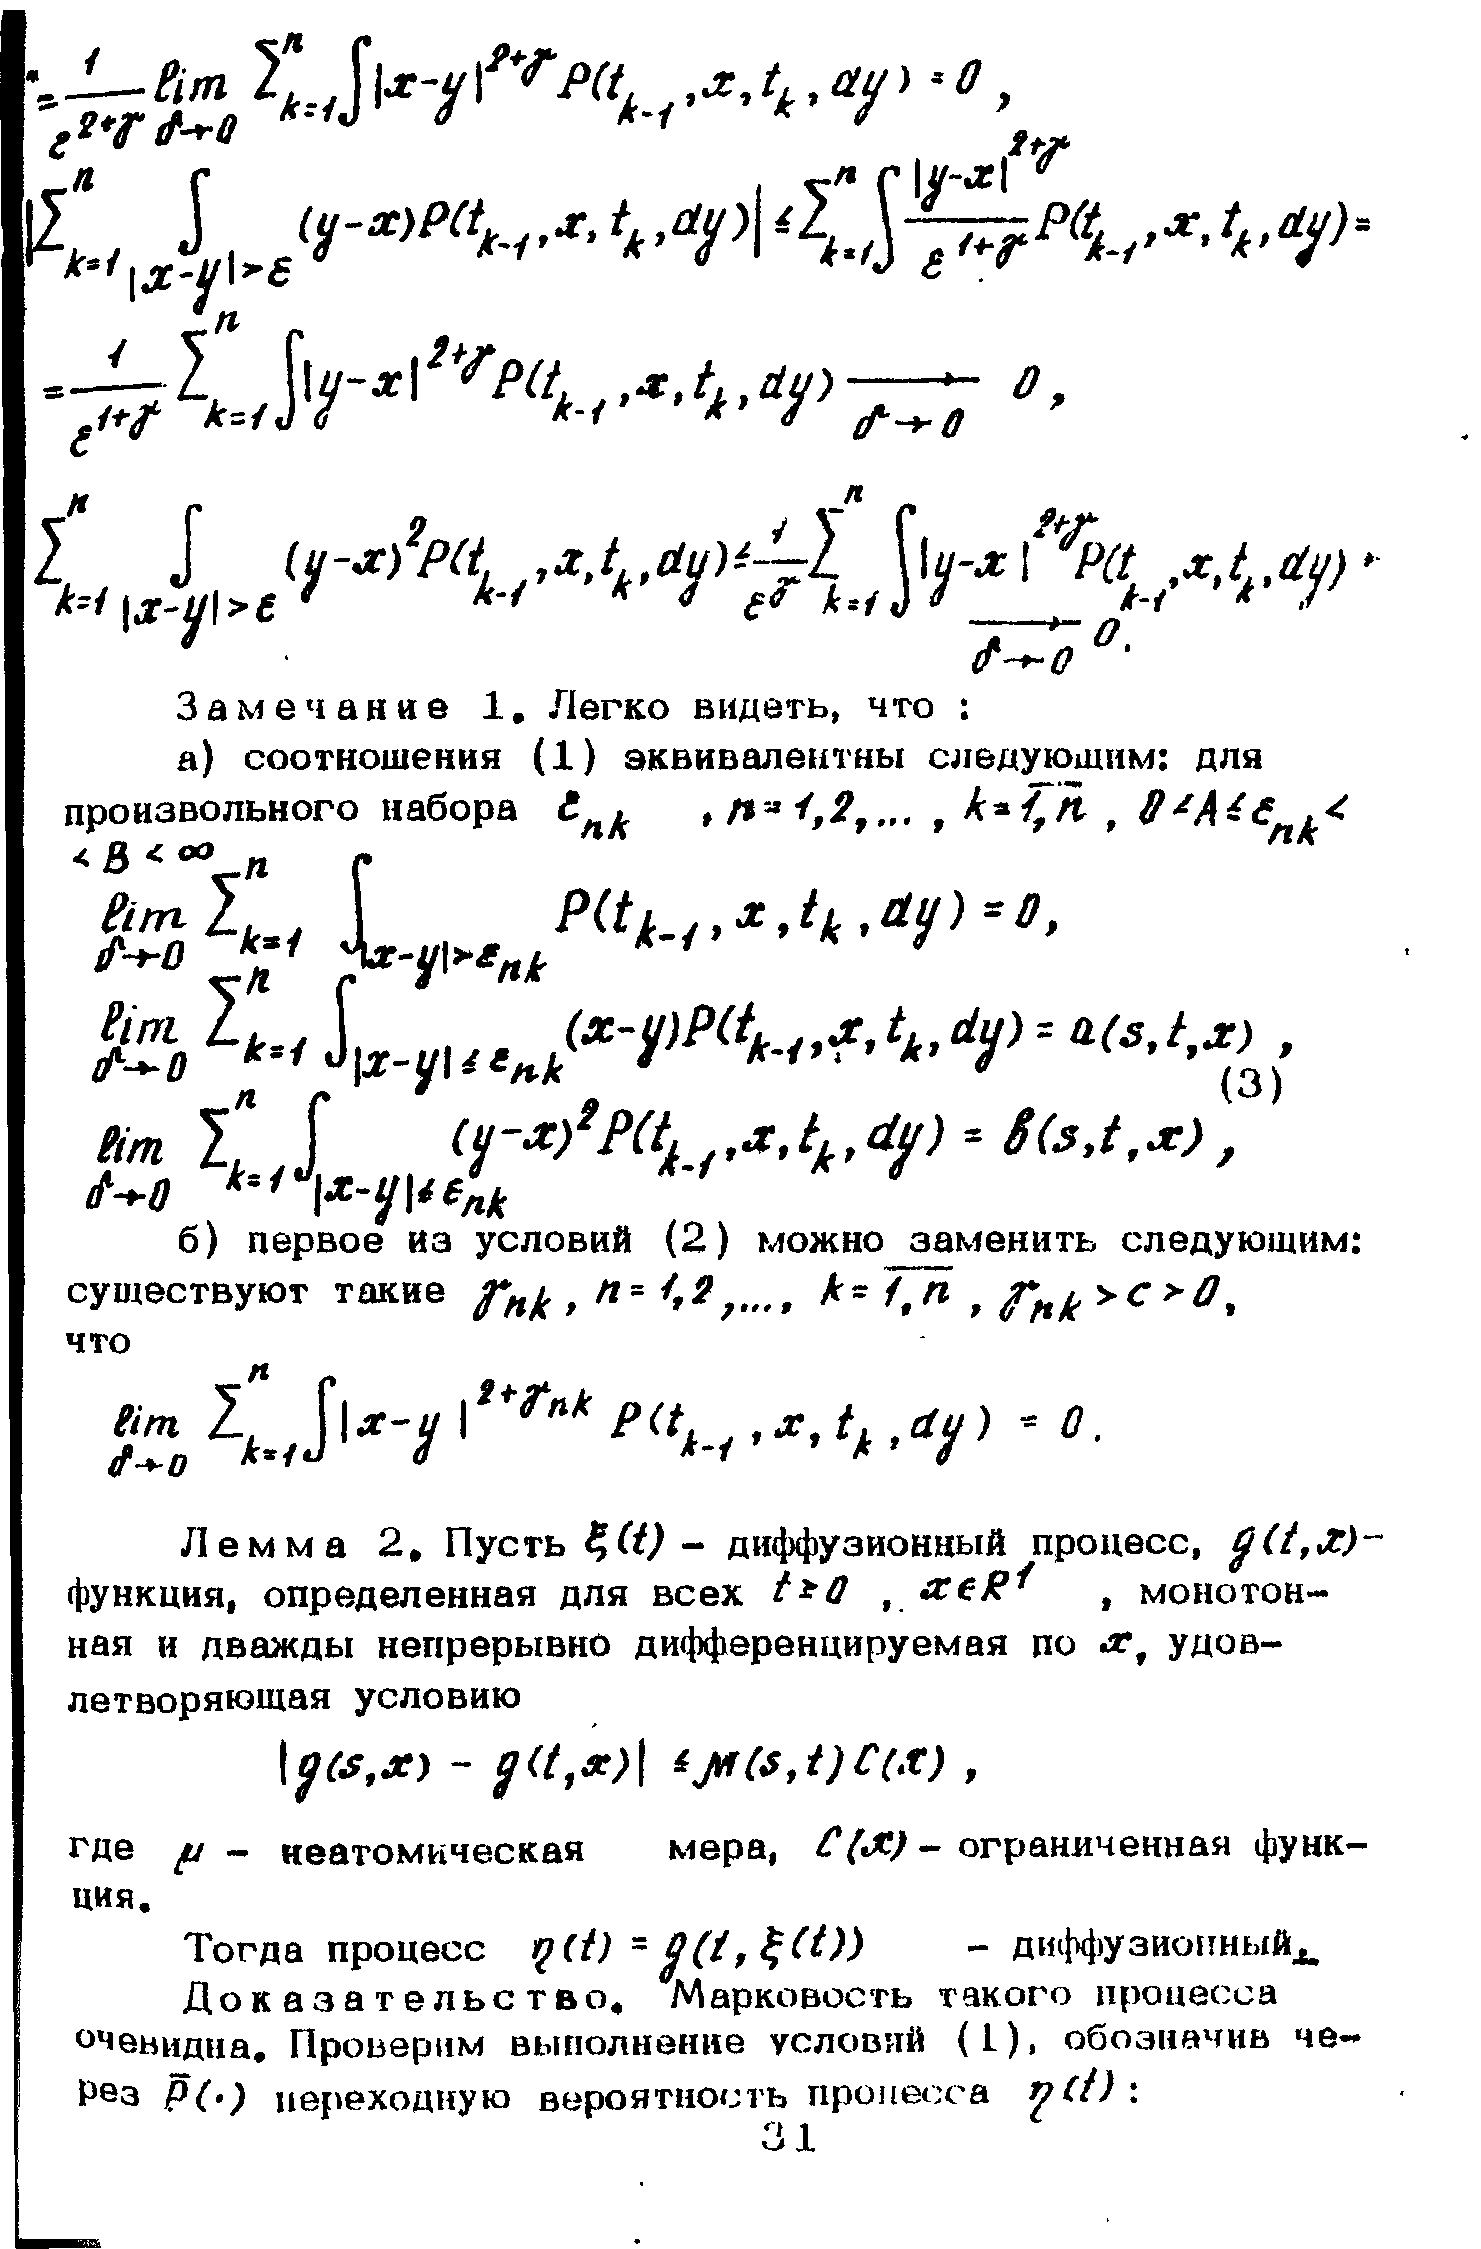 = 1/ε^{2+γ} lim_{δ→0} ∑_{k=1}^{n} ∫|x-y|^{2+γ} P(t_{k-1}, x, t_k, dy) = 0,
|∑_{k=1}^{n} ∫_{|x-y|>ε} (y-x)P(t_{k-1}, x, t_k, dy)| ≤ ∑_{k=1}^{n} ∫ |y-x|^{2+γ}/ε^{1+γ} P(t_{k-1}, x, t_k, dy) =
= 1/ε^{1+γ} ∑_{k=1}^{n} ∫|y-x|^{2+γ} P(t_{k-1}, x, t_k, dy) →_{δ→0} 0,
∑_{k=1}^{n} ∫_{|x-y|>ε} (y-x)^2 P(t_{k-1}, x, t_k, dy) ≤ 1/ε^γ ∑_{k=1}^{n} ∫|y-x|^{2+γ} P(t_{k-1}, x, t_k, dy) →_{δ→0} 0.
Замечание 1. Легко видеть, что :
а) соотношения (1) эквивалентны следующим: для
произвольного набора ε_{nk} , n=1,2,... , k=\overline{1,n} , 0<A≤ε_{nk}<
<B<∞
lim_{δ→0} ∑_{k=1}^{n} ∫_{|x-y|>ε_{nk}} P(t_{k-1}, x, t_k, dy) = 0,
lim_{δ→0} ∑_{k=1}^{n} ∫_{|x-y|≤ε_{nk}} (x-y)P(t_{k-1}, x, t_k, dy) = a(s,t,x) ,
(3)
lim_{δ→0} ∑_{k=1}^{n} ∫_{|x-y|≤ε_{nk}} (y-x)^2 P(t_{k-1}, x, t_k, dy) = b(s,t,x) ,
б) первое из условий (2) можно заменить следующим:
существуют такие γ_{nk} , n=1,2,..., k=\overline{1,n} , γ_{nk}>c>0,
что
lim_{δ→0} ∑_{k=1}^{n} ∫|x-y|^{2+γ_{nk}} P(t_{k-1}, x, t_k, dy) = 0.
Лемма 2. Пусть ξ(t) – диффузионный процесс, g(t,x)-
функция, определенная для всех t≥0 , x∈R^1 , монотон-
ная и дважды непрерывно дифференцируемая по x, удов-
летворяющая условию
|g(s,x) - g(t,x)| ≤ μ(s,t)C(x) ,
где μ – неатомическая мера, C(x) – ограниченная функ-
ция.
Тогда процесс η(t) = g(t, ξ(t)) – диффузионный.
Доказательство. Марковость такого процесса
очевидна. Проверим выполнение условий (1), обозначив че-
рез \bar{P}(·) переходную вероятность процесса η(t) :
31